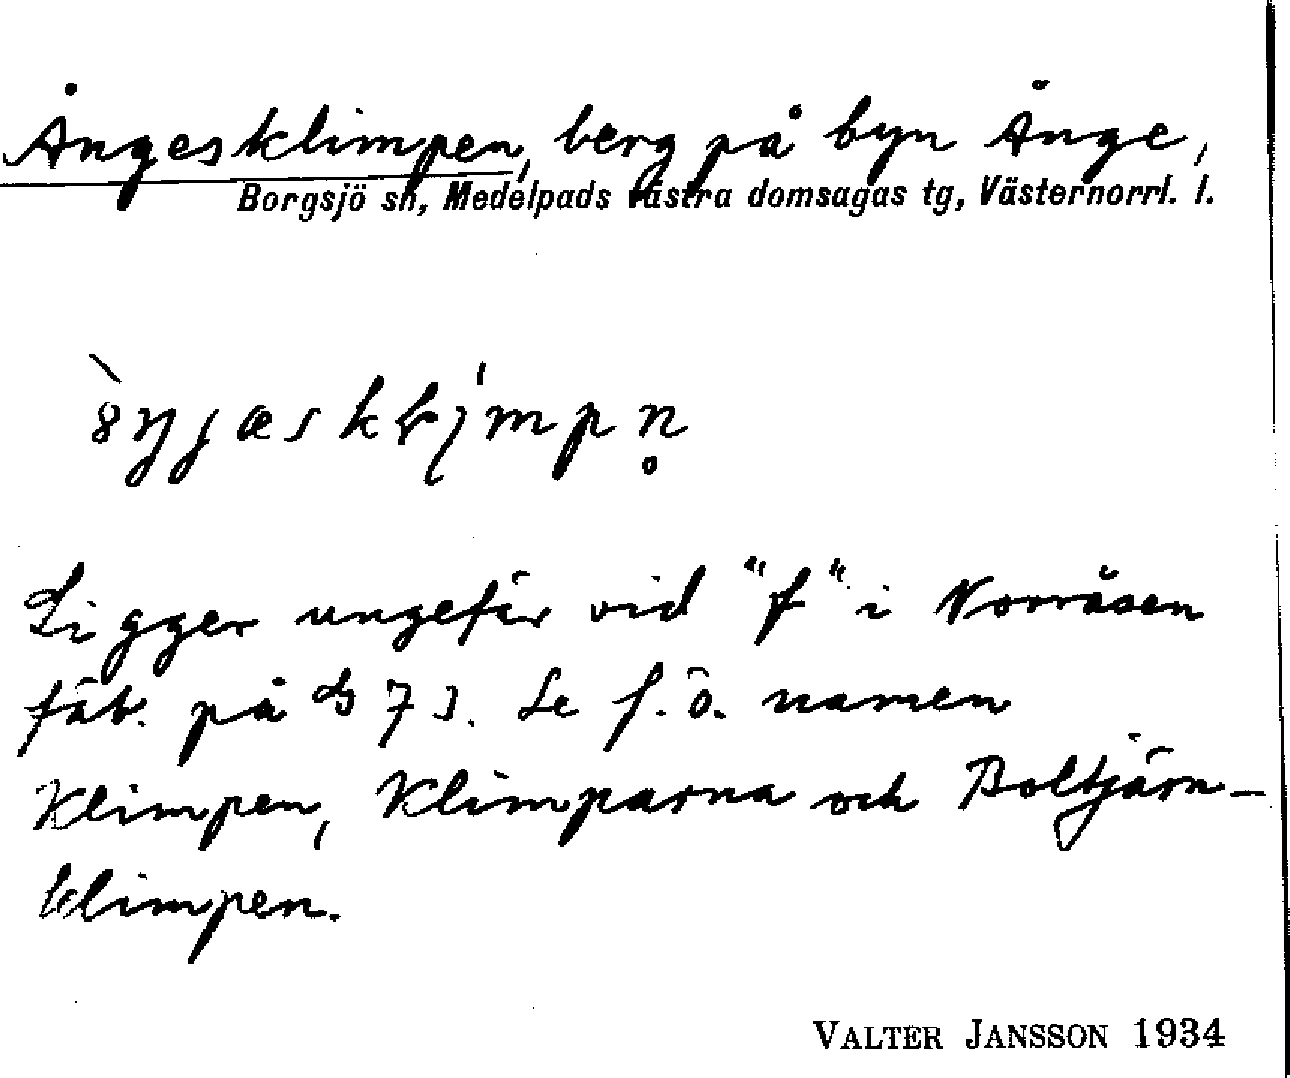 Ångesklimpen, berg på byn Ånge,
Borgsjö sn, Medelpads västra domsagas tg, Västernorrl. l.
Ligger ungefär vid "f" i Norråsen
fäb. på 73. Se f. ö. namen
Klimpen, Klimparna och Boltjärn-
klimpen.
VALTER JANSSON 1934